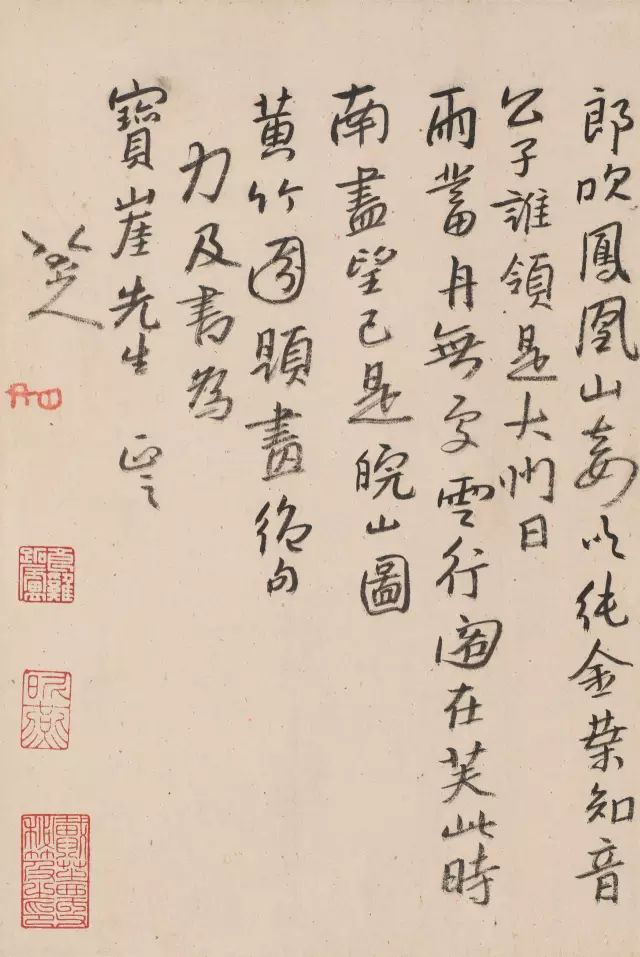 郎吹鳳凰山妾純金葉知音
公子誰領是大州日
雨舟無處雲行在芙此時
南盡望已是皖山圖
黃竹園題畫絕句
力及書為
寶崖先生 正之
八大山人